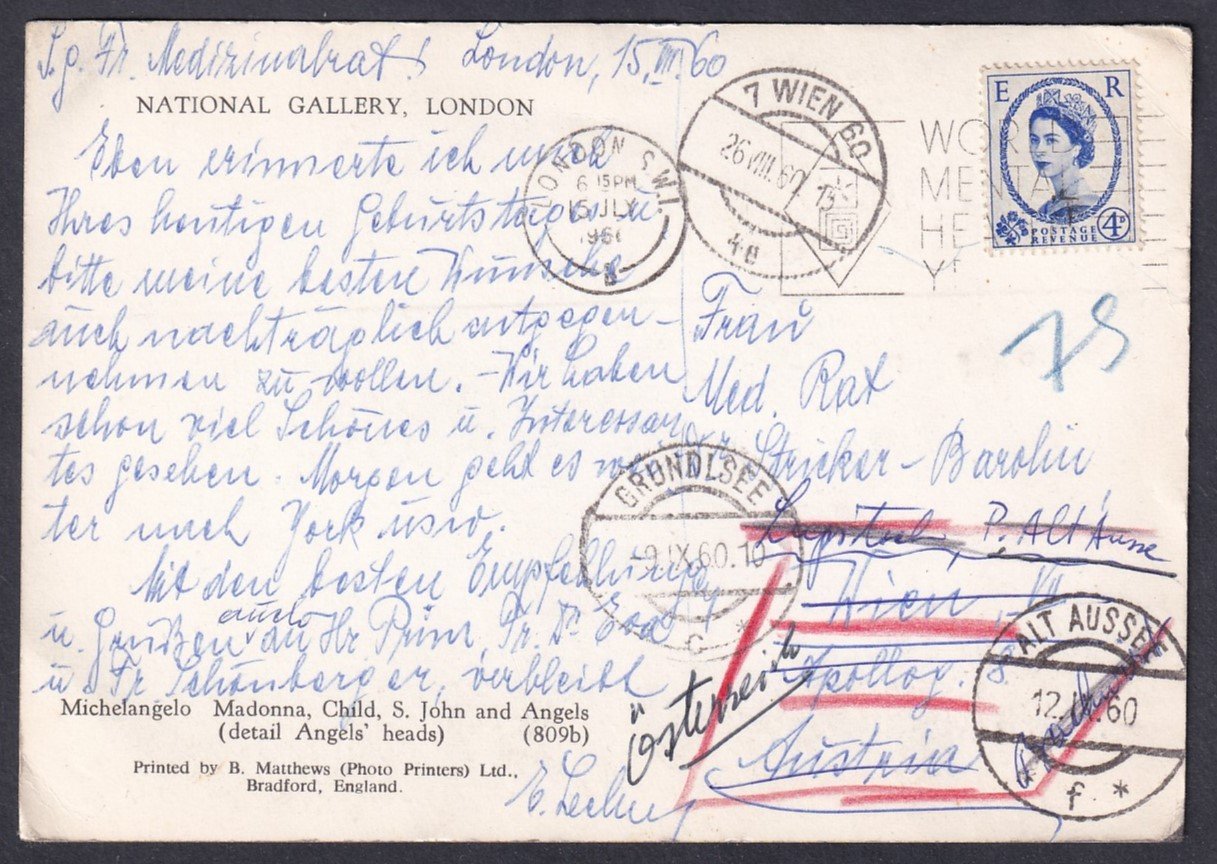 S. g. Fr. Medizinalrat! London, 15.VII.60
NATIONAL GALLERY, LONDON
Eben erinnerte ich mich
Ihres heutigen Geburtstages u.
bitte meine besten Wünsche
auch nachträglich entgegen-
nehmen zu wollen. - Wir haben
schon viel Schönes u. Interessan
tes gesehen. Morgen geht es wei
ter nach York usw.
Mit den besten Empfehlungen
u. Grüßen auch an Hr. Prim. Dr.
u. Fr. Schönberger, verbleibt
E.
Michelangelo Madonna, Child, S. John and Angels
(detail Angels' heads) (809b)
Printed by B. Matthews (Photo Printers) Ltd.,
Bradford, England.
LONDON S.W.1
6 15 PM
15 JLY
196
B
7 WIEN 60
26.VIII.60 13
4a
WOR
MENTA
HE
YE
E R
POSTAGE
REVENUE
4D
79
Frau
Med. Rat
Dr. Stricker-Barolin
P. Alt Aussee
Wien, VI
Apollog. 8
Austria
Österreich
GRUNDLSEE
-9.IX.60.10
c *
ALT AUSSEE
12.IX.60
f *